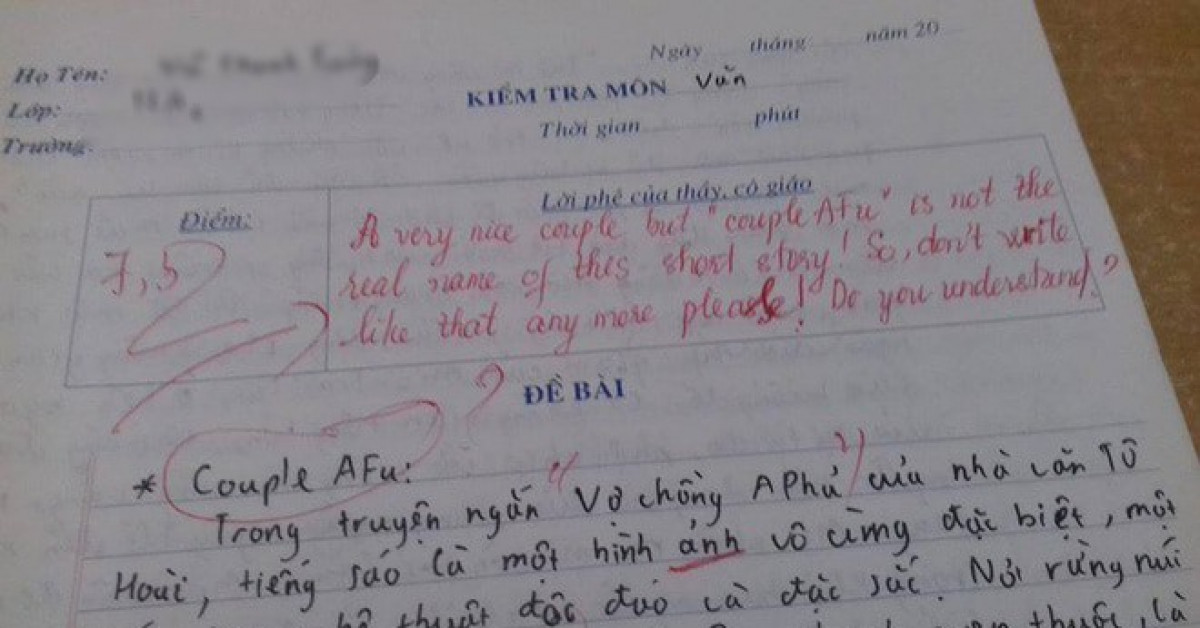 Họ Tên:
Lớp:
Trường:
Ngày tháng năm 20
KIỂM TRA MÔN Văn
Thời gian phút
Điểm:
7,5
Lời phê của thầy, cô giáo
A very nice couple but "couple AFu" is not the
real name of this short story! So, don't write
like that any more please! Do you understand?
ĐỀ BÀI
* Couple AFu:
Trong truyện ngắn "Vợ chồng A Phủ" của nhà văn Tô
Hoài, tiếng sáo là một hình ảnh vô cùng đặc biệt, một
thuật độc đáo và đặc sắc. Nơi rừng núi
thuộc, là